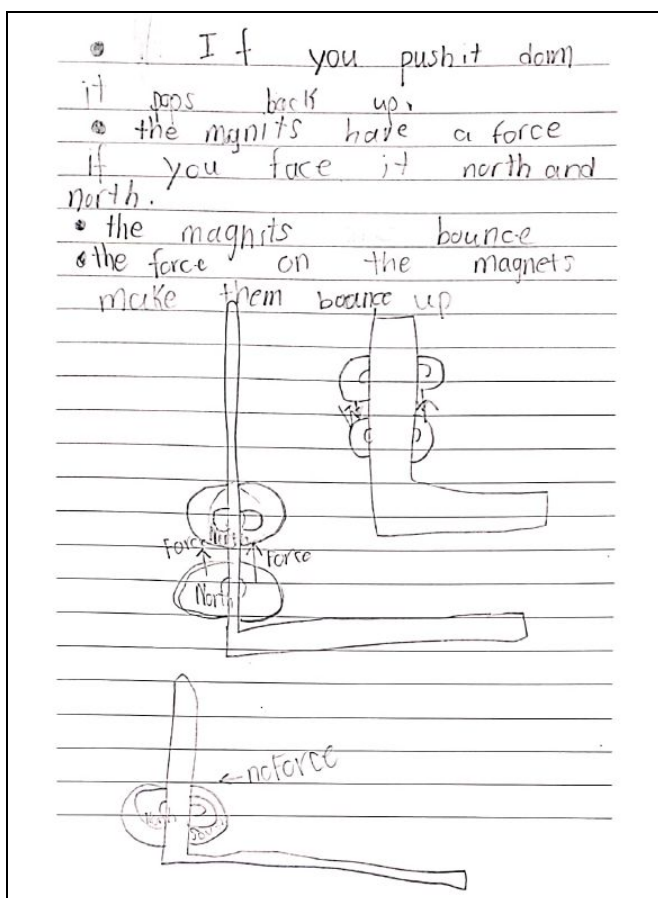 • If you push it down
it pops back up.
• the mgnits have a force
if you face it north and
north.
• the magnits bounce
• the force on the magnets
make them bounce up
North
Force Force
North
← no Force
North South